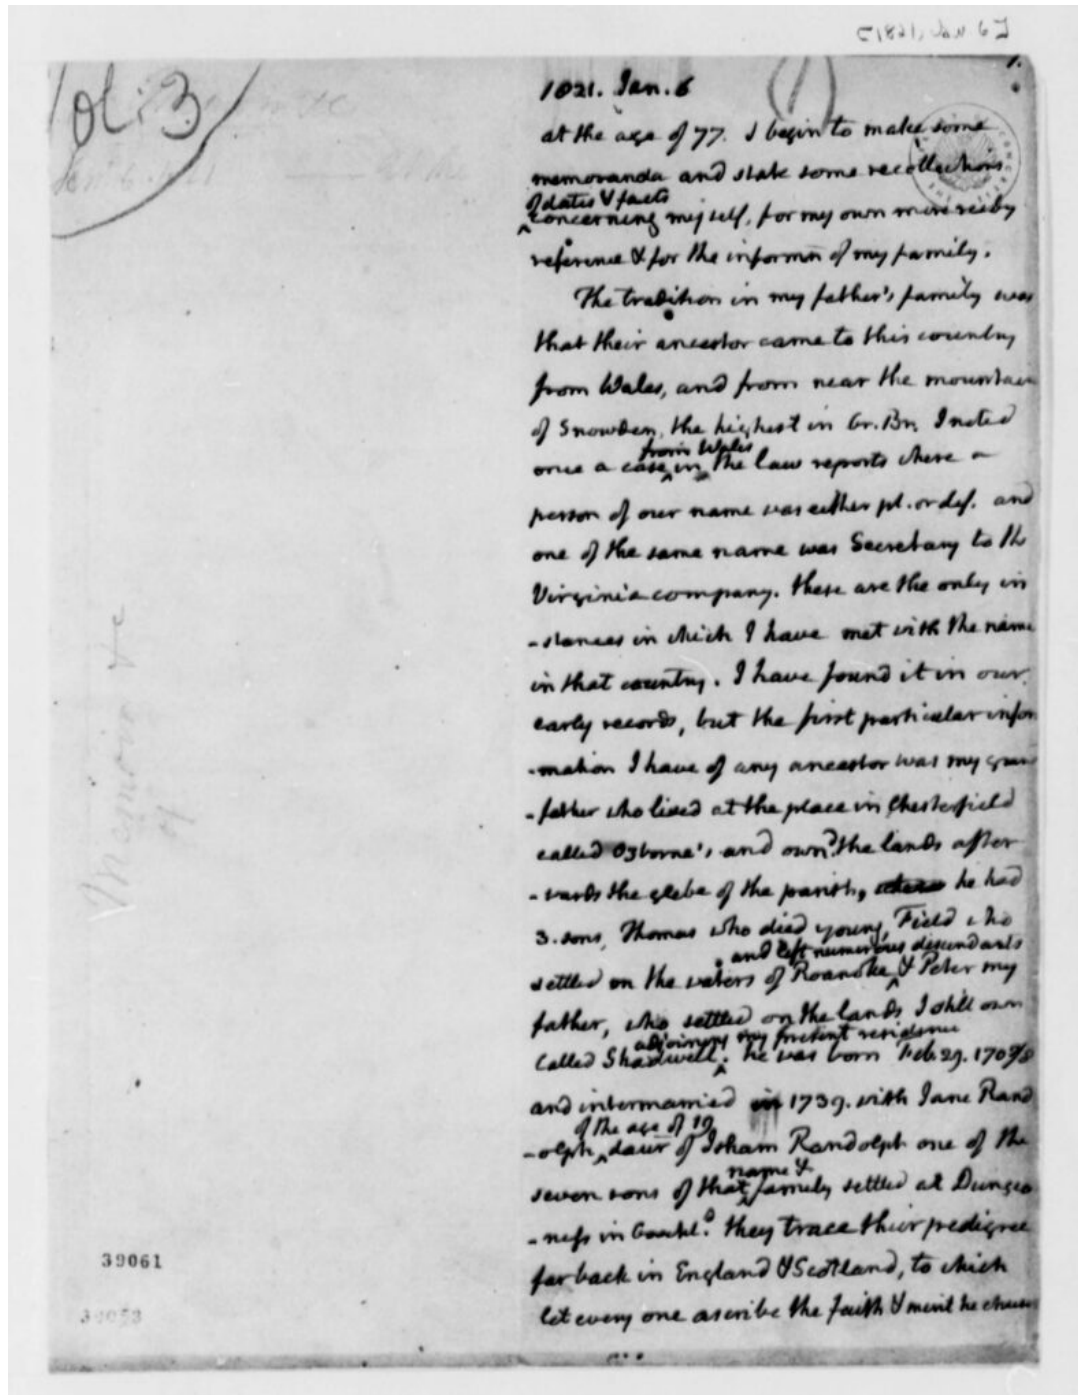 1821. Jan. 6
at the age of 77. I begin to make some
memoranda and state some recollections
of dates & facts
concerning myself, for my own more ready
reference & for the informn of my family.
The tradition in my father's family was
that their ancestor came to this country
from Wales, and from near the mountain
of Snowden, the highest in Gr. Br. I noted
from Wales
once a case in the law reports where a
person of our name was either pl. or def. and
one of the same name was Secretary to the
Virginia company. these are the only in
-stances in which I have met with the name
in that country. I have found it in our
early records, but the first particular infor
-mation I have of any ancestor was my grand
-father who lived at the place in Chesterfield
called Ozborne's and ownd. the lands after
-wards the glebe of the parish, he had
3. sons, Thomas who died young, Field who
and left numerous descendants
settled on the waters of Roanoke & Peter my
father, who settled on the lands I still own
adjoining my present residence
called Shadwell. he was born Feb. 29. 1707/8
and intermarried in 1739. with Jane Rand
of the age of 19
-olph, daur of Isham Randolph one of the
name &
seven sons of that family settled at Dungeo
-ness in Goochld. they trace their pedigree
far back in England & Scotland, to which
let every one ascribe the faith & merit he chuses
Vol: 3
Memoir &c
of
39061
1.
[1821, Jan. 6]